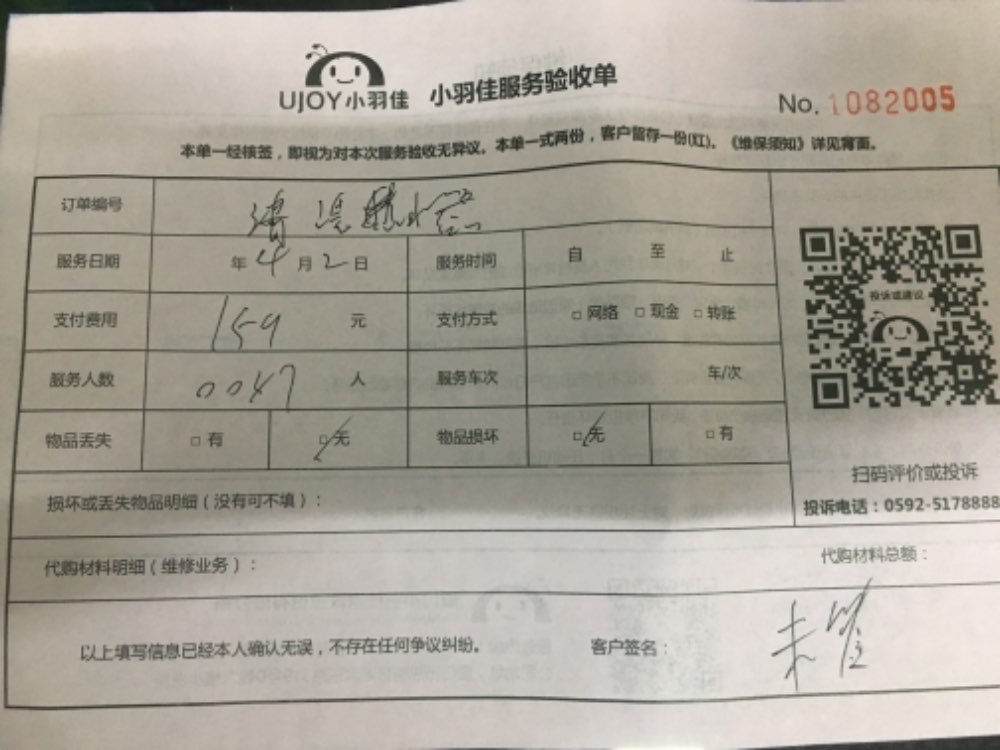 UJOY小羽佳 小羽佳服务验收单
No. 1082005
本单一经核签，即视为对本次服务验收无异议。本单一式两份，客户留存一份(红)。《维保须知》详见背面。
订单编号
服务日期 年4月2日 服务时间 自 至 止
支付费用 159 元 支付方式 □网络 □现金 □转账
投诉或建议
服务人数 0047 人 服务车次 车/次
物品丢失 □有 □无 物品损坏 □无 □有
扫码评价或投诉
损坏或丢失物品明细（没有可不填）：
投诉电话：0592-5178888
代购材料明细（维修业务）：
代购材料总额：
以上填写信息已经本人确认无误，不存在任何争议纠纷。 客户签名：